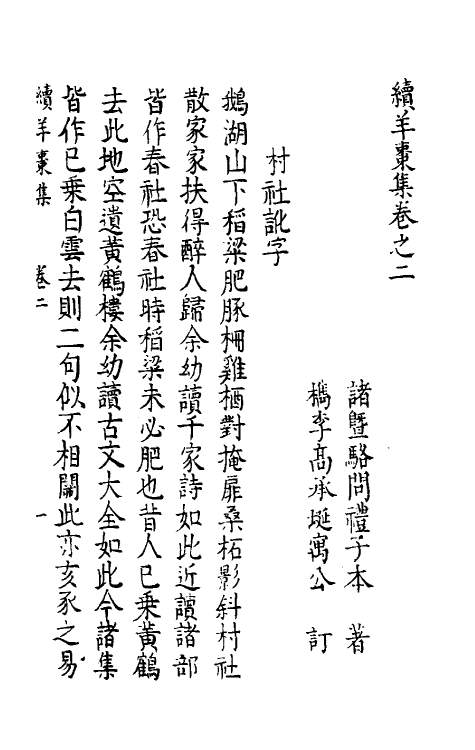 續羊棗集卷之二
諸暨駱問禮子本 著
檇李高承埏寓公 訂
村社訛字
鵝湖山下稻粱肥豚柵雞栖對掩扉桑柘影斜村社
散家家扶得醉人歸余幼讀千家詩如此近讀諸部
皆作春社恐春社時稻粱未必肥也昔人已乗黃鶴
去此地空遺黃鶴樓余幼讀古文大全如此今諸集
皆作已乗白雲去則二句似不相關此亦亥豕之易
續羊棗集 卷二 一